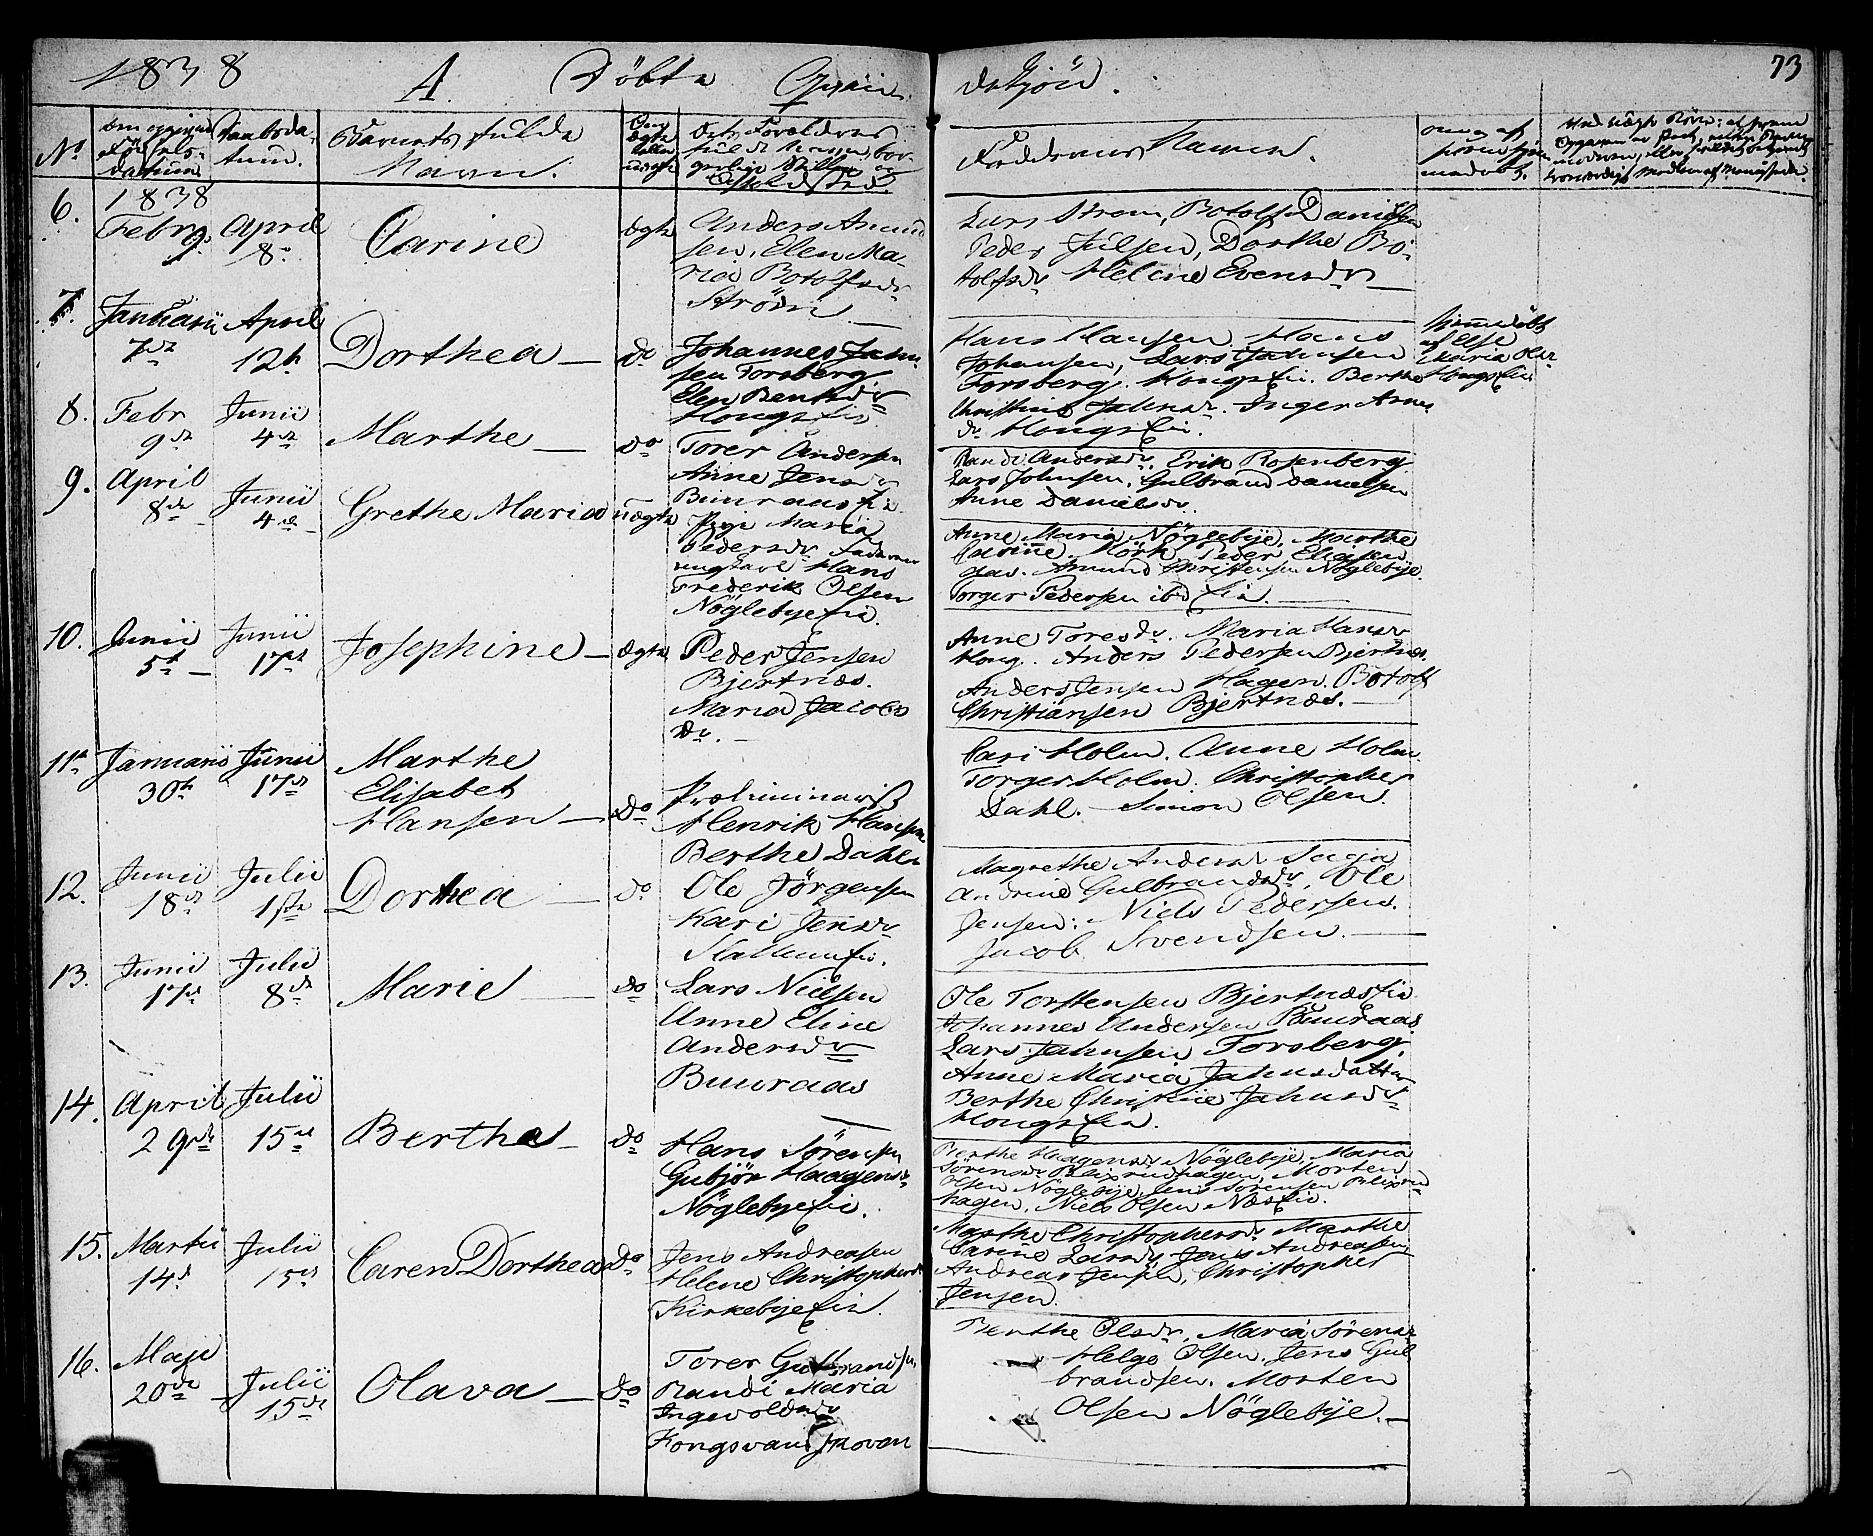 1838 A. Døbte Qvindekjön. 73
No
Daabsdatum.
Barnets fulde Navn.
Faddernes Navne.
6. 1838 Febr 9. April 8. Carine ægte Anders Amundsen, Elen Maria Botolfsdr Ström
Lars Strøm, Botolf Danielsen
Peder Julsen, Dorthe Botolfsdr Helene Evensdr
7. Januarii 7de April 12t Dorthea do Johannes Jahnsen Forsberg
Elen Berntsdr
Hans Hansen, Hans
Johansen, Lars Jahnsen
Forsberg. Berthe
Christine Jahnsdr. Inger Arnesdr
hjemmedöbt af Else Maria Olsdr
8. Febr 9de Junii 4de Marthe do Torer Andersen
Anne Jensdr
Buuraas
Randi Andersdr, Erik Rosenberg
Lars Johnsen, Gulbrand Danielsen
Anne Danielsdr.
9. April 8de Junii 4de Grethe Maria uægte Pige Maria
Pedersdr.
ungkarl Hans
Frederik Olsen
Nöglebye
Anne Maria Nöglebye, Marthe
Carine Mörk Peder Eliasen
Amund Christensen Nöglebye.
Torger Pedersen ibd
10. Junii 5t Junii 17de Josephine ægte Peder Jensen
Bjertnæs.
Maria Jacobsdr.
Anne Toresdr. Maria Hansdr
Anders Pedersen Bjertnæs.
Anders Jensen Hagen. Botolf
Christiansen Bjertnæs.
11te Januarii 30t Junii 17de Marthe Elisabet Hansen do
Henrik Hansen
Berthe Dahl
Cari Holm. Anne Holm
Torger Holm. Christopher
Dahl. Simon Olsen.
12. Junii 18de Julii 1ste Dorthea do Ole Jörgensen
Kari Jensdr
Magrethe Andersdr
Andrine Gulbrandsdr, Ole
Jensen: Niels Pedersen.
Jacob Svendsen.
13. Junii 17de Julii 8de Marie do Lars Nielsen
Anne Eline
Andersdr
Buuraas
Ole Torstensen Bjertnæs
Johannes Andersen Buuraas
Lars Jahnsen Forsberg,
Anne Maria Jahnsdatter
Berthe Christine Jahnsdr
14. April 29de Julii 15de Berthe do Hans Sörensen
Gubjör Haagensdr
Nöglebye
Berthe Haagensdr Nöglebye, Maria
Sörensdr Morten
Olsen Nöglebye, Jens Sörensen
hagen, Niels Olsen
15. Martii 14de Julii 15de Caren Dorthea do Jens Andreasen
Helene Christophersdr
Kirkebye
Marthe Christophersdr Marthe
Carine Larsdr Jens Andreasen,
Andreas Jensen, Christopher
Jensen.
16. Maji 20de Julii 15de Olava do Torer Gulbrandsen,
Randi Maria
Ingevoldsdr
Berthe Olsdr, Maria Sörensdr
Helge Olsen. Jens Gulbrandsen. Morten
Olsen Nöglebye.